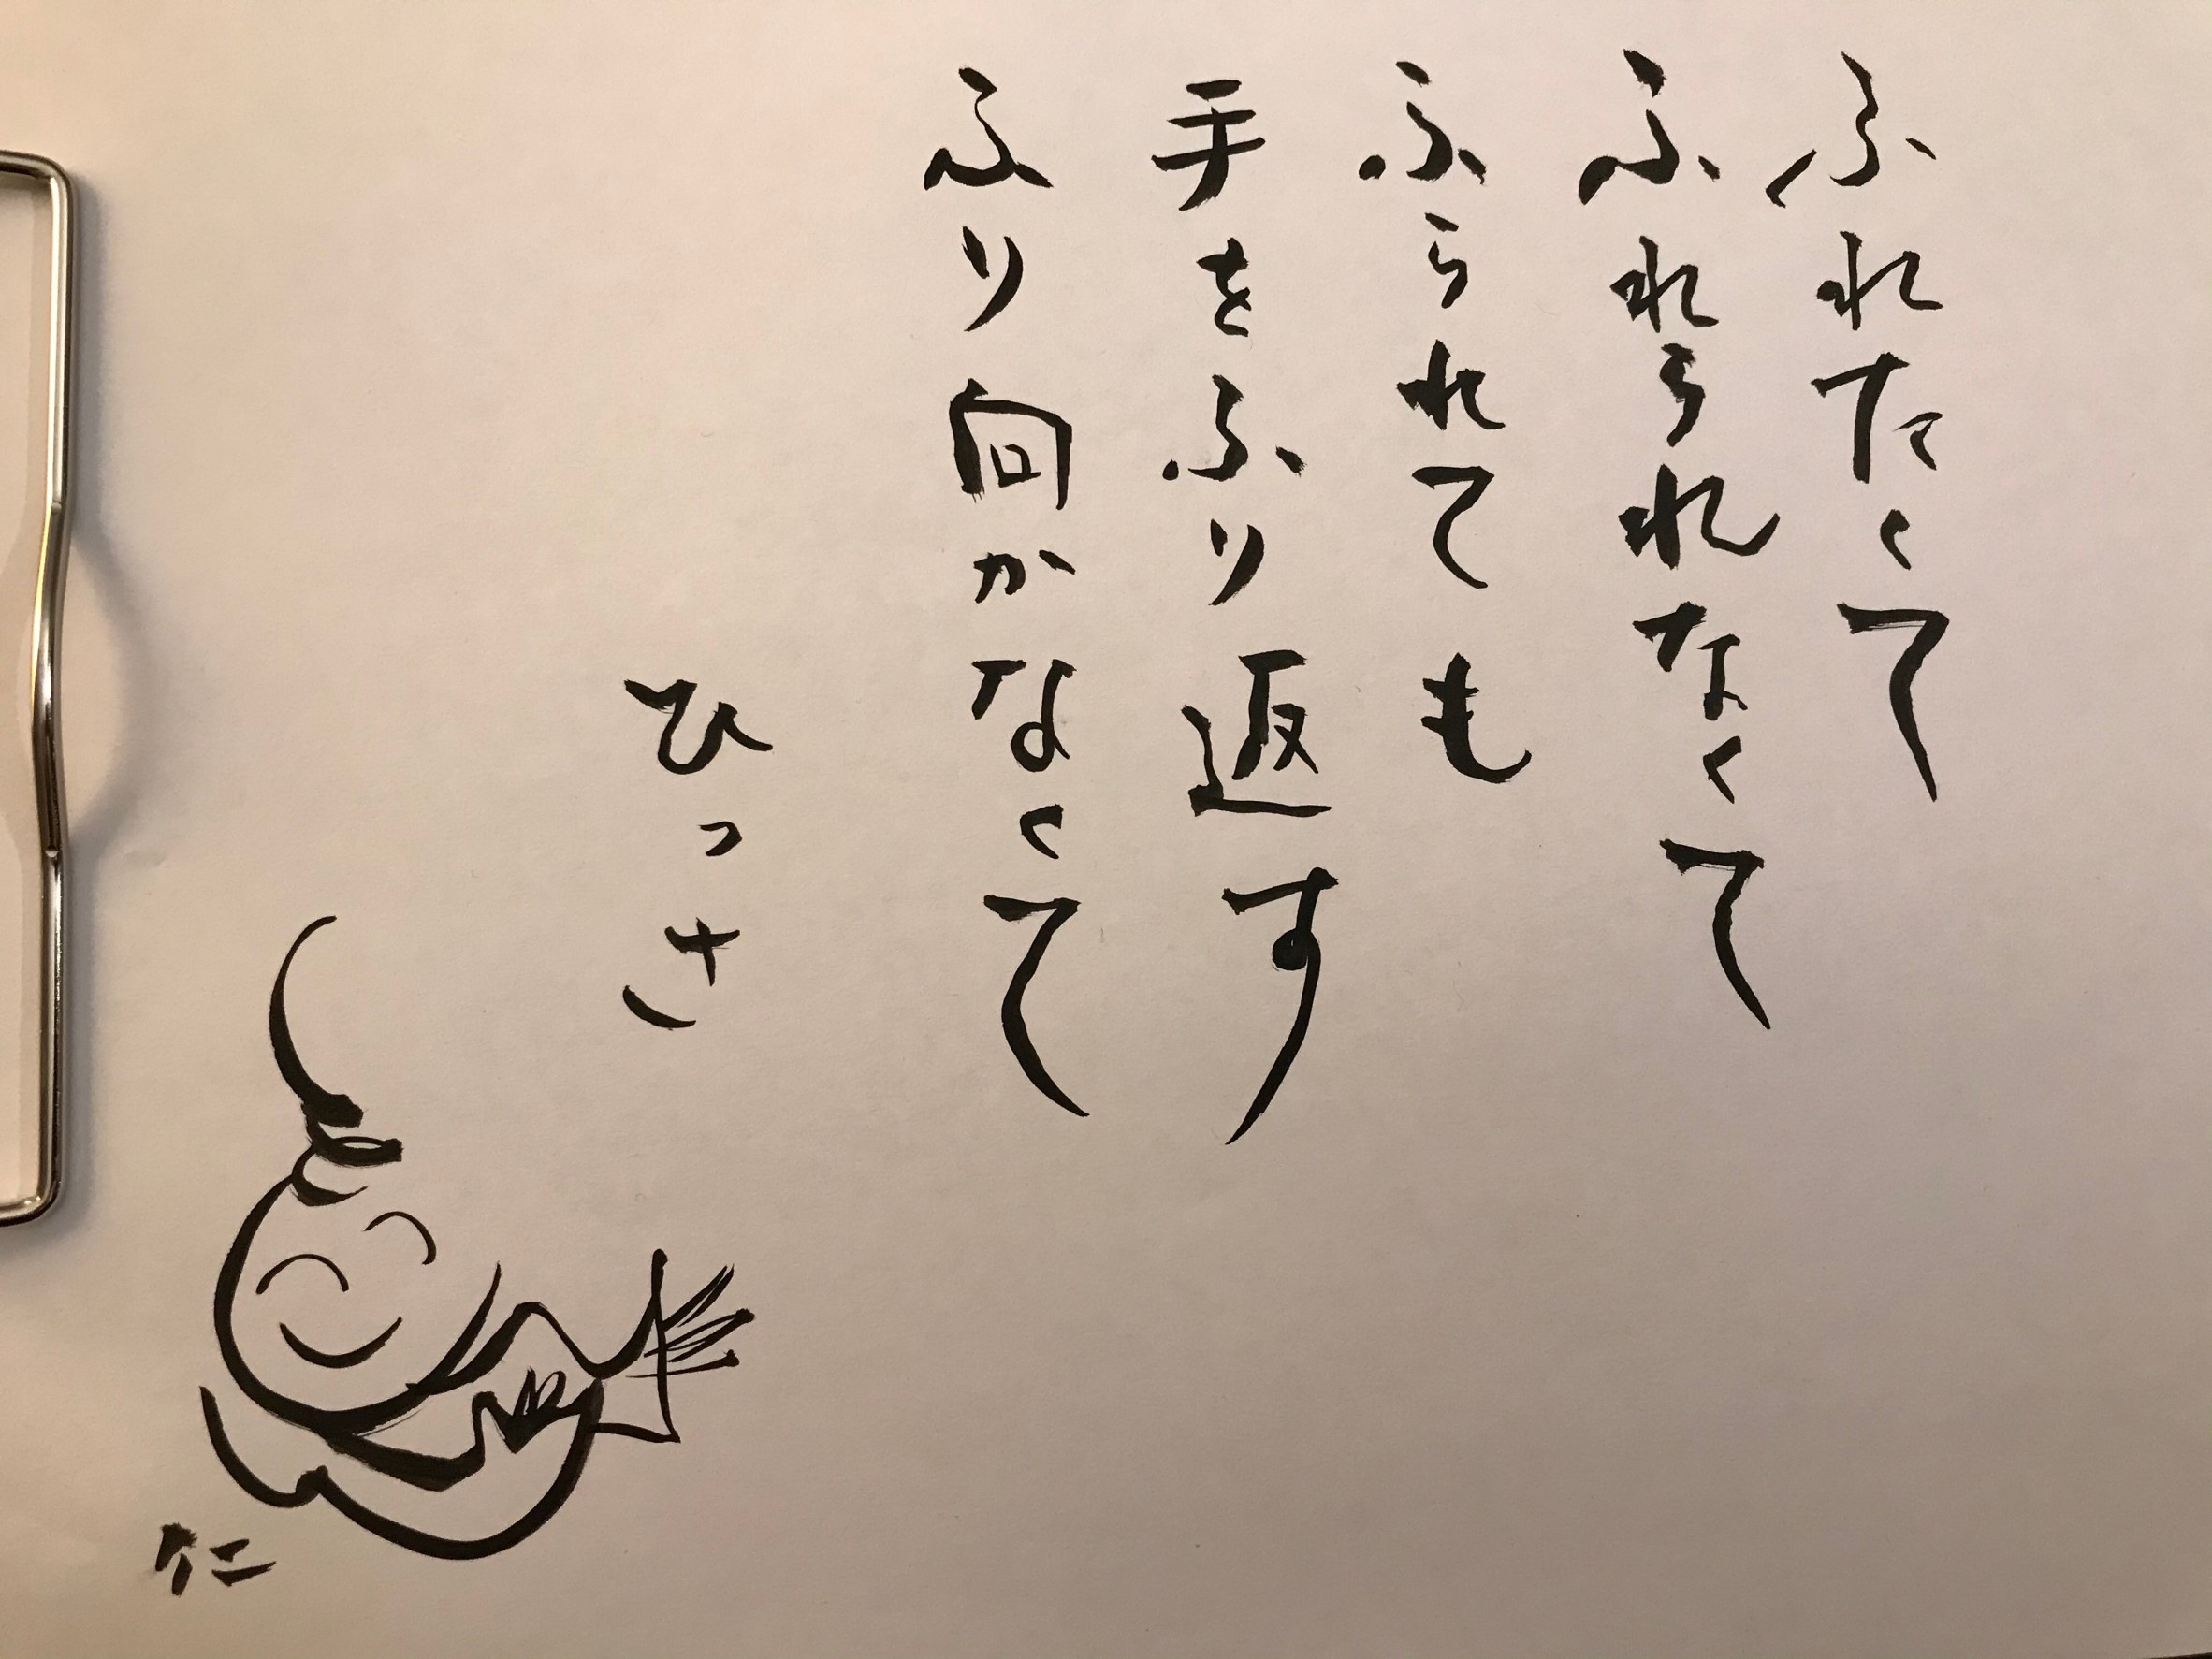 ふれたくて
ふれられなくて
ふられても
手をふり返す
ふり向かなくて
ひっさ
仁